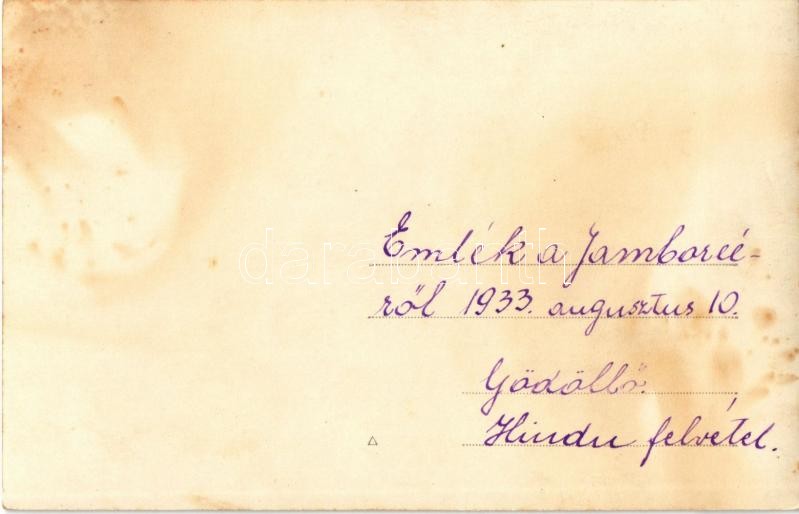 Emlék a Jamboreé-
ről 1933. augusztus 10.
Gödöllő.
Hindu felvétel.